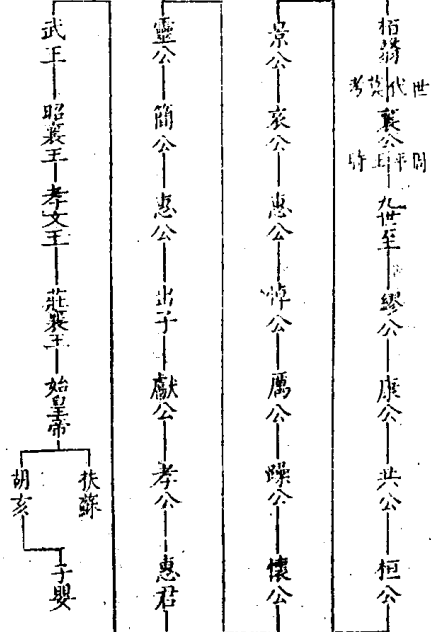 柏翳
世代莫考
襄公
周平王時
九世至
繆公
康公
共公
桓公
景公
哀公
惠公
悼公
厲公
躁公
懷公
靈公
簡公
惠公
出子
獻公
孝公
惠君
武王
昭襄王
孝文王
莊襄王
始皇帝
扶蘇
胡亥
子嬰